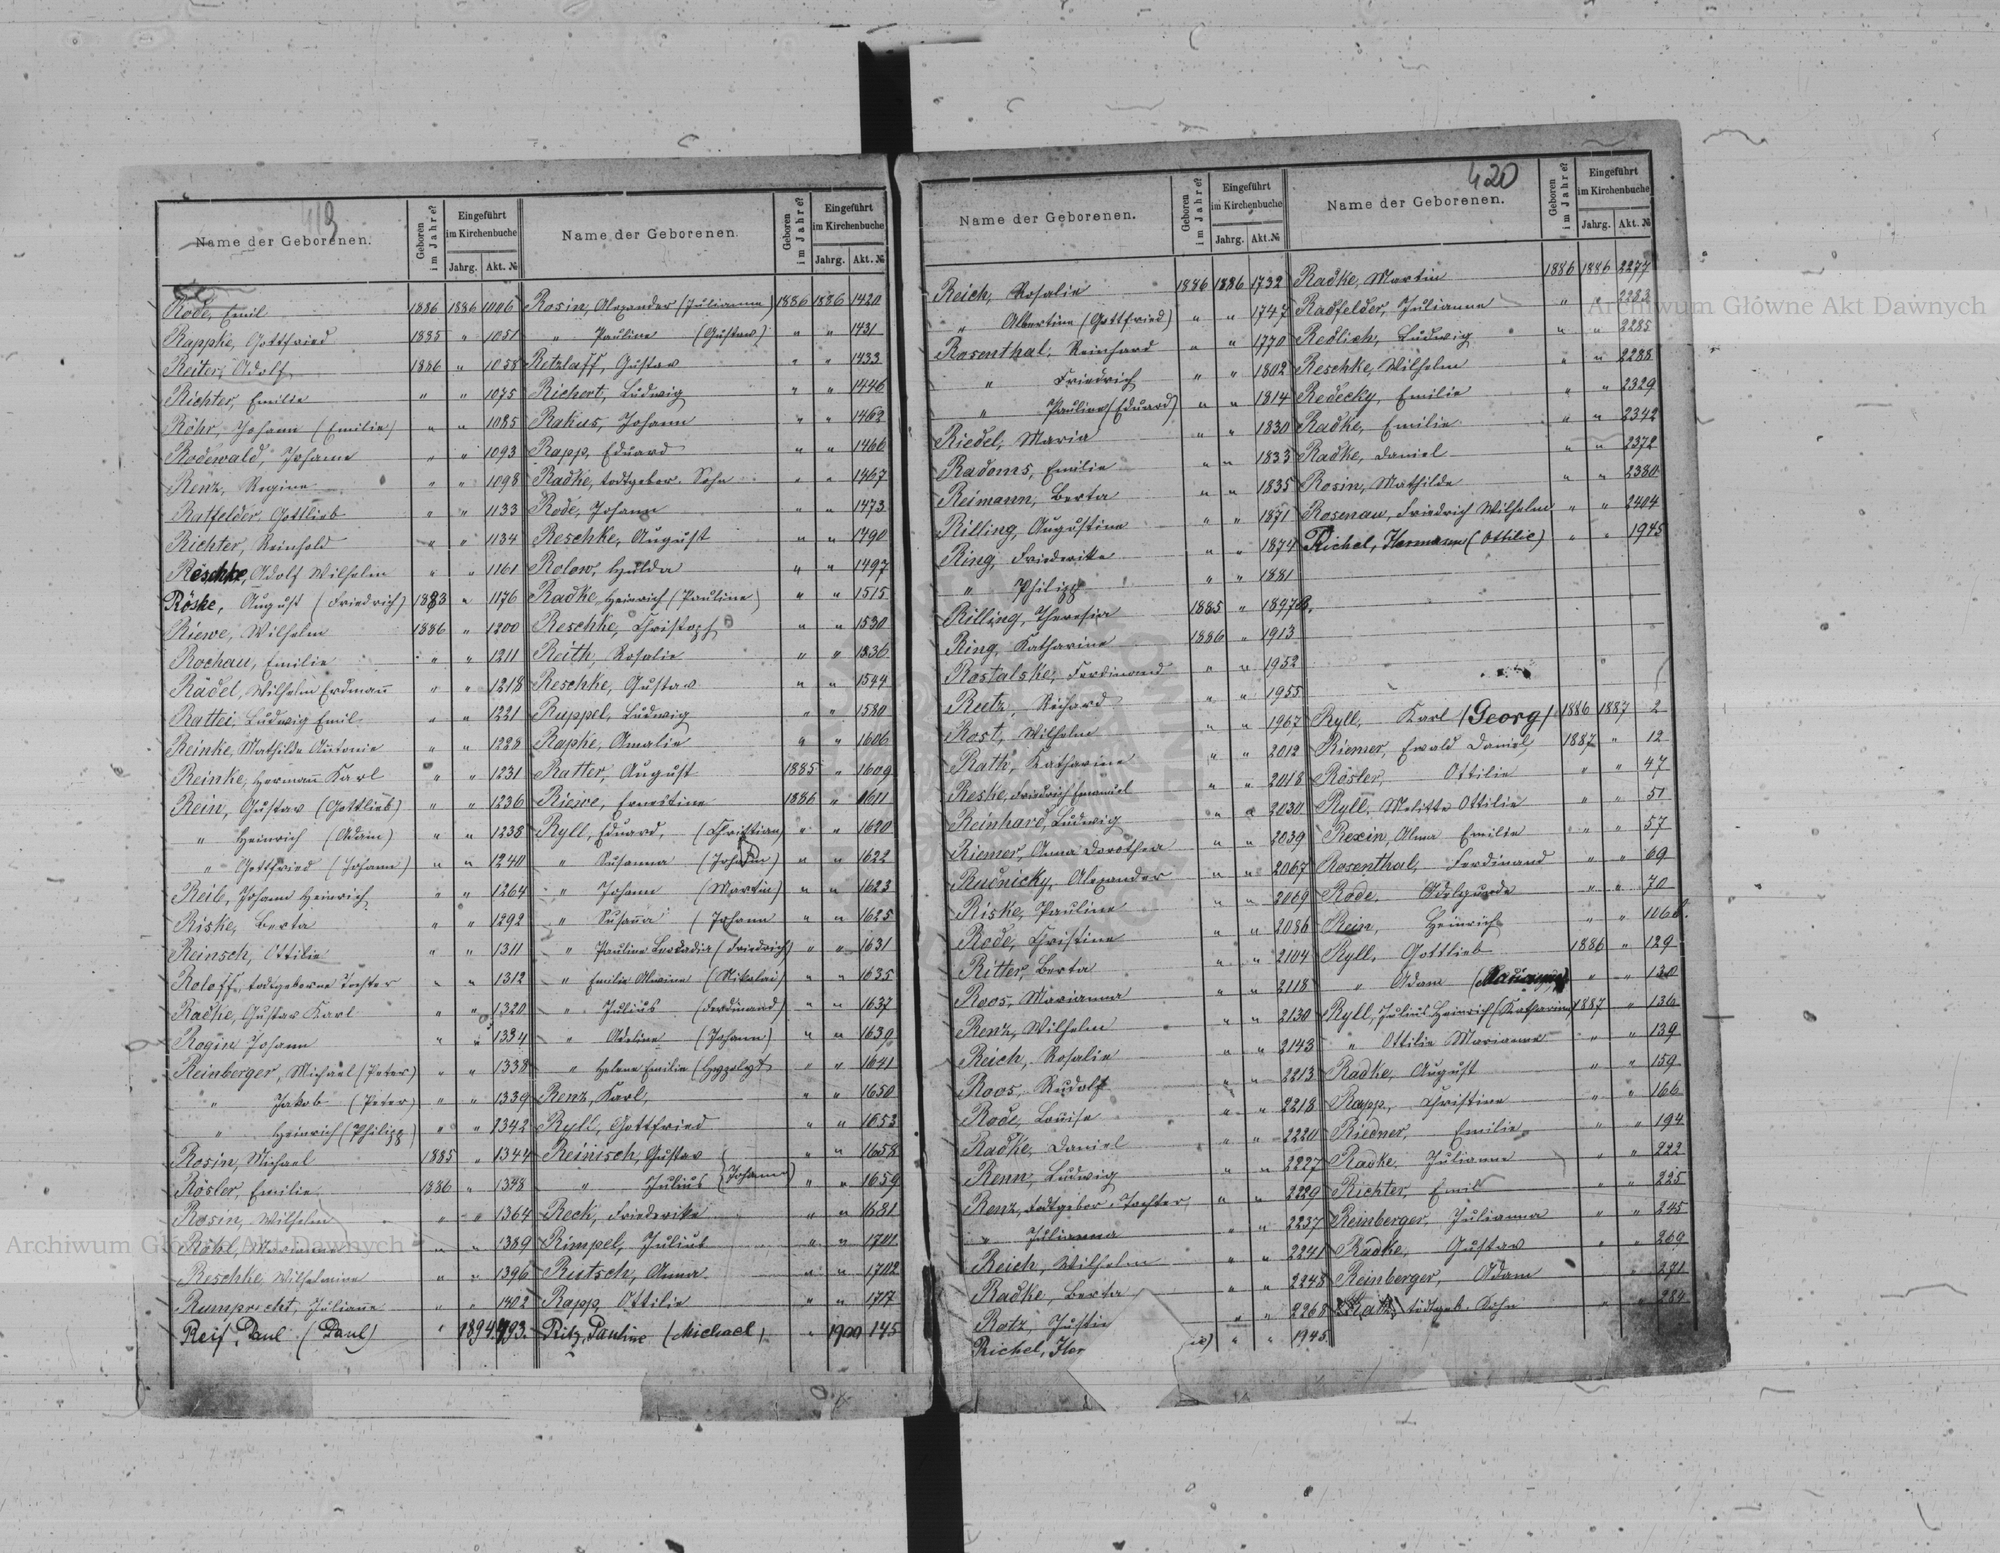 419
Name der Geborenen.
Geboren im Jahre?
Eingeführt im Kirchenbuche
Jahrg. Akt. №
Rode, Emil 1886 1886 1006
Rappke, Gottfried 1885 " 1051
Reiter, Adolf 1886 " 1058
Richter, Emilie " " 1075
Röhr, Johann (Emilie) " " 1085
Rodewald, Johann " " 1093
Renz, Regine " " 1098
Ratfelder, Gottlieb " " 1133
Richter, Reinhold " " 1134
Reschke, Adolf Wilhelm " " 1161
Röske, August (Friedrich) 1883 " 1176
Riewe, Wilhelm 1886 " 1200
Rochau, Emilie " " 1211
Rädel, Wilhelm Erdmann " " 1218
Rattei, Ludwig Emil " " 1221
Reinke, Mathilde Antonie " " 1228
Reinke, Hermann Karl " " 1231
Rein, Gustav (Gottlieb) " " 1236
" Heinrich (Adam) " " 1238
" Gottfried (Johann) " " 1240
Reib, Johann Heinrich " " 1264
Riske, Berta " " 1292
Reinsch, Ottilie " " 1311
Roloff, todtgeborne Tochter " " 1312
Radke, Gustav Karl " " 1320
Rogin Johann " " 1334
Reinberger, Michael (Peter) " " 1338
" Jakob (Peter) " " 1339
" Heinrich (Philipp) " " 1342
Rosin, Michael 1885 " 1344
Rösler, Emilie 1886 " 1348
Rosin, Wilhelm " " 1364
" " 1389
Reschke, Wilhelmine " " 1396
Rumprecht, Julianne " " 1402
Reif, Paul (Paul) " 1894 793.
Name der Geborenen.
Geboren im Jahre?
Eingeführt im Kirchenbuche
Jahrg. Akt. №
Rosin, Alexander (Julianna) 1886 1886 1420
" Pauline (Gustav) " " 1431
Retzlaff, Gustav " " 1433
Richert, Ludwig " " 1446
Rakus, Johann " " 1462
Rapp, Eduard " " 1466
Radke, todtgebor. Sohn " " 1467
Rode, Johann " " 1473
Reschke, August " " 1490
Rolow, Hulda " " 1497
Radke, Heinrich (Pauline) " " 1515
Reschke, Christoph " " 1530
Reith, Rosalie " " 1536
Reschke, Gustav " " 1544
Ruppel, Ludwig " " 1580
Rapke, Amalie " " 1606
Ratter, August 1885 " 1609
Riewe, Ernestine 1886 " 1611
Ryll, Eduard, (Christian) " " 1620
" Susanna (Johann) " " 1622
" Johann (Martin) " " 1623
" Susanna (Johann " " 1625
" Pauline Leokadia (Friedrich) " " 1631
" Emilie Alwine (Nikolai) " " 1635
" Julius (Ferdinand) " " 1637
" Adeline (Johann) " " 1639
" Helene Emilie (Hyppolyt " " 1641
Renz, Karl, " " 1650
Ryll, Gottfried " " 1653
Reinisch, Gustav " " 1658
" Julius (Johann) " " 1659
Reck, Friederike " " 1681
Rimpel, Julius " " 1701
Rutsch, Anna " " 1702
Rapp, Ottilie " " 1717
Ritz, Pauline (Michael) " 1900 145
420
Name der Geborenen.
Geboren im Jahre?
Eingeführt im Kirchenbuche
Jahrg. Akt. №
Reich, Rosalie 1886 1886 1732
" Albertine (Gottfried) " " 1747
Rosenthal, Reinhard " " 1770
" Friedrich " " 1802
" Pauline (Eduard) " " 1814
Riedel, Maria " " 1830
Radoms, Emilie " " 1833
Reimann, Berta " " 1835
Rilling, Augustine " " 1871
Ring, Friederike " " 1874
" Philipp " " 1881
Rilling, Theresia 1885 " 1897B.
Ring, Katharine 1886 " 1913
Rostalske, Ferdinand " " 1952
Rutz, Richard " " 1955
Rost, Wilhelm " " 1967
Rath, Katharine " " 2012
Reske, Friedrich Emanuel " " 2018
Reinhard, Ludwig " " 2030
Riemer, Anna Dorothea " " 2039
Rudnicky, Alexander " " 2067
Riske, Pauline " " 2069
Rode, Christine " " 2086
Ritter, Berta " " 2104
Roos, Marianna " " 2118
Renz, Wilhelm " " 2130
Reich, Rosalie " " 2143
Roos, Rudolf " " 2213
Rode, Louise " " 2218
Radke, Daniel " " 2220
Renn, Ludwig " " 2227
Renz, todtgebor. Tochter " " 2229
" Julianna " " 2237
Reich, Wilhelm " " 2241
Radke, Berta " " 2248
Rotz, Justin " " 2268
Richel, Her " " 1945
Name der Geborenen.
Geboren im Jahre?
Eingeführt im Kirchenbuche
Jahrg. Akt. №
Radke, Martin 1886 1886 2277
Radfelder, Julianne " " 2283
Redlich, Ludwig " " 2285
Reschke, Wilhelm " " 2288
Redecky, Emilie " " 2329
Radke, Emilie " " 2342
Radke, Daniel " " 2372
Rosin, Mathilde " " 2380
Rosenau, Friedrich Wilhelm " " 2404
Richel, Hermann (Ottilie) " " 1945
Ryll, Karl (Georg) 1886 1887 2
Riemer, Ewald Daniel 1887 " 12
Rösler, Ottilie " " 47
Ryll, Melitta Ottilie " " 51
Rexin, Alma Emilie " " 57
Rosenthal, Ferdinand " " 69
Rode, Adelgunde " " 70
Rein, Heinrich " " 106
Ryll, Gottlieb 1886 " 129
" Adam " " 130
Ryll, Julius Heinrich (Katharina) 1887 " 136
" Ottilie Marianne " " 139
Radke, August " " 159
Rapp, Christine " " 166
Riedner, Emilie " " 194
Radke, Julianne " " 222
Richter, Emil " " 225
Reinberger, Julianna " " 245
Radke, Gustav " " 269
Reinberger, Adam " " 271
Rath, todtgeb. Sohn " " 284
Archiwum Główne Akt Dawnych
Archiwum Główne Akt Dawnych